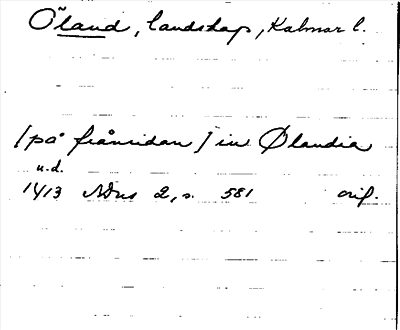 Öland, landskap, Kalmar l.
[på frånsidan] in Ølandia
u.d.
1413 SDns 2, s. 581 orig.